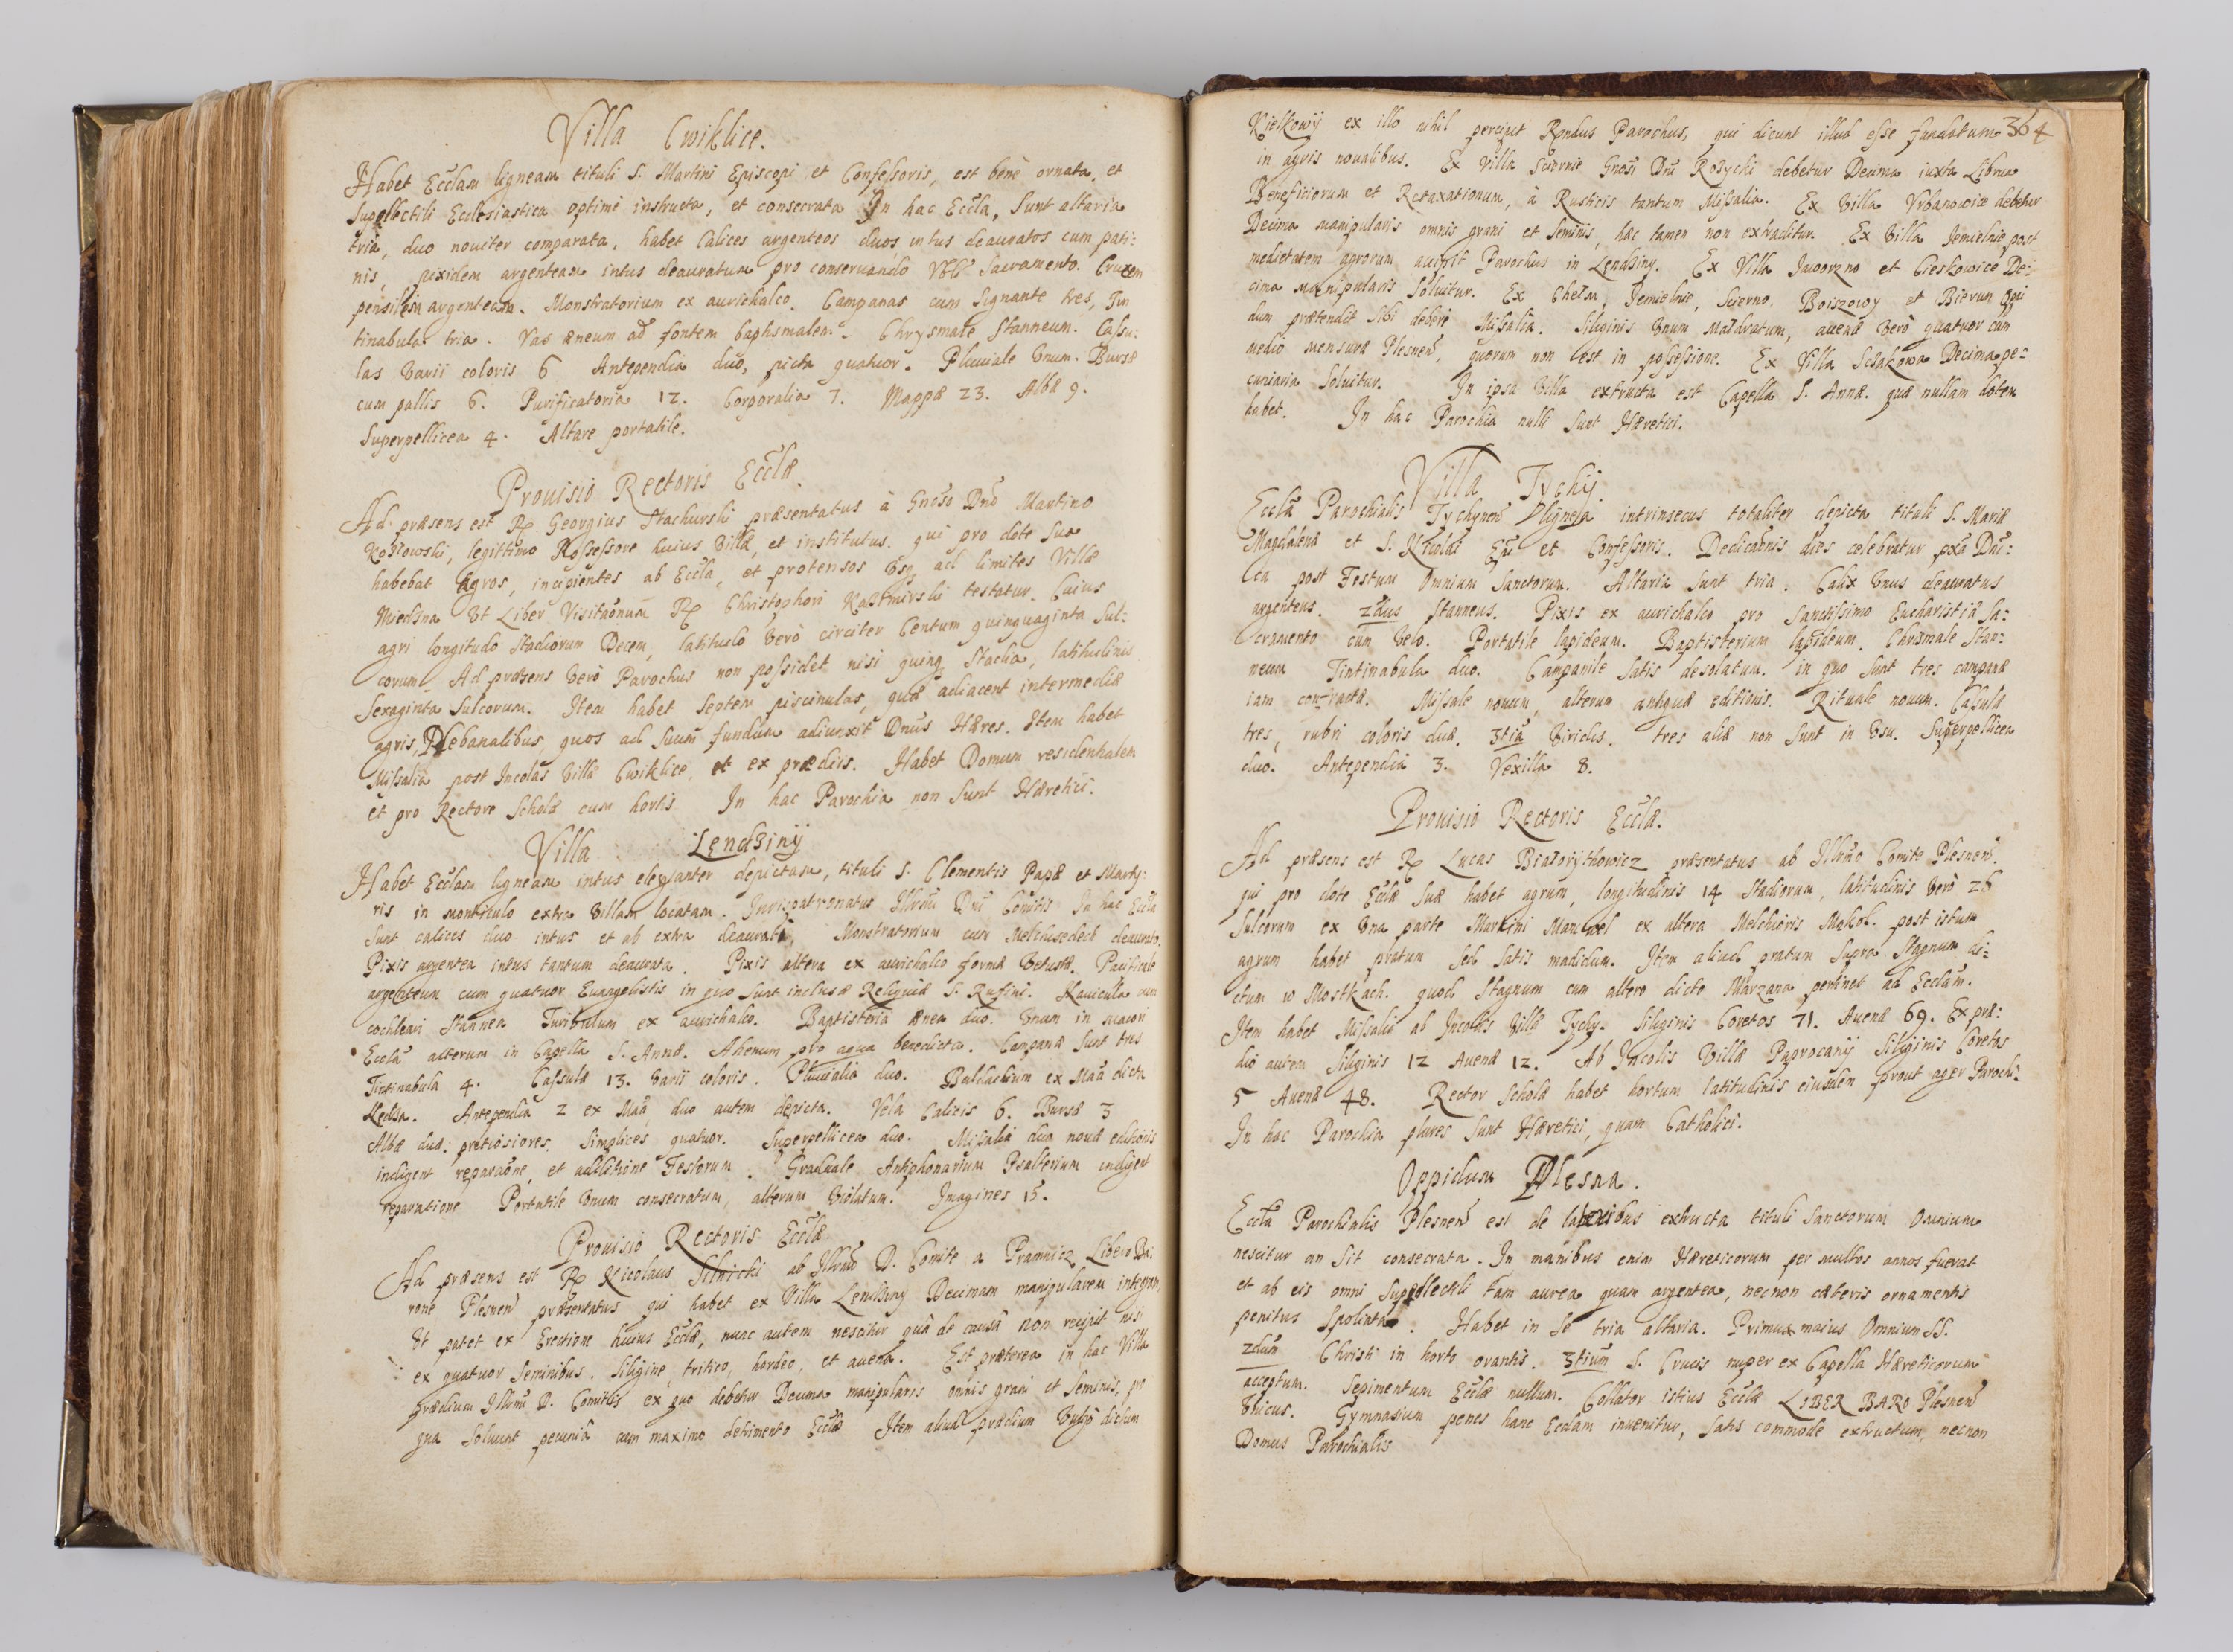 Villa Cwiklice.
Habet Ecclam ligneam tituli S. Martini Episcopi et Confessoris, est bene ornata, et
Supellectili Ecclesiastica optime instructa, et consecrata In hac Eccla, Sunt altaria
tria, duo noviter comparata, habet Calices argenteos duos, intus deauratos cum pati:
nis, pixidem argenteam intus deauratum pro conseruando Sacramento. Crucem
pensilem argenteam. Monstratorium ex aurichalco. Campanas cum Signante tres, Tin
tinabula tria. Vas æneum ad fontem baptismalem. Chrysmate Stanneum. Casu:
las Varii coloris 6 Antependia duo, picta quatuor. Pluuiale Vnum. Bursæ
cum pallis 6. Purificatoria 12. Corporalia 7. Mappæ 23. Albæ 9.
Superpellicea 4. Altare portatile.
Prouisio Rectoris Ecclæ.
Ad præsens est R. Georgius Stachurski præsentatus à Gnoso Dno Martino
Kozlowski, legittimo Possessore huius Villæ, et institutus. qui pro dote Sua
habebat Agros, incipientes ab Eccla, et protensos Vsq ad limites Villæ
Miedzna Vt Liber Visitaonum R. Christophori Kazimirski testatur. Cuius
agri longitudo Stadiorum Decem, latitudo Verò circiter Centum quinquaginta Sul:
corum Ad præsens Verò Parochus non possidet nisi quinq Stadia, latitudinis
Sexaginta Sulcorum. Item habet Septem piscinulas, quæ adiacent intermediæ
agris Plebanalibus quos ad Suum fundum adiunxit Dnus Hæres. Item habet
Missalia post Incolas Villæ Cwiklice, et ex prædiis. Habet Domum residentialem
et pro Rectore Scholæ cum hortis In hac Parochia non Sunt Hæretici.
Villa Lendziny
Habet Ecclam ligneam intus eleganter depictam, tituli S. Clementis Papæ et Marty:
ris in monticulo extra Villam locatam. Iurispatronatus Illrmi Dni Comitis In hac Eccla
Sunt calices duo intus et ab extra deaurati, Monstratorium cum Melchisedech deaurato.
Pixis argentea intus tantum deaurata. Pixis altera ex aurichalco formæ Vetustæ. Pacificale
argenteum cum quatuor Euangelistis in quo Sunt inclusæ Reliquiæ S. Rufini. Nauicula cum
cochleari Stannea Turibulum ex aurichalco. Baptisteria ænea duo. Vnum in maiori
Eccla alterum in Capella S. Annæ. Ahenum pro aqua benedicta. Campanæ Sunt tres
Tintinabula 4. Casulæ 13. Varii coloris. Pluuialia duo. Baldachium ex Maa dicta
Antependia 2 ex Maa, duo autem depicta. Vela Calicis 6. Bursæ 3
Albæ duæ pretiosiores. Simplices quatuor. Superpellicea duo. Missalia duo nouæ editionis
indigent reparaone, et additione Festorum. Graduale Antiphonarium Psalterium indigent
reparatione Portatile Vnum consecratum, alterum Violatum. Imagines 15.
Prouisio Rectoris Ecclæ
Ad præsens est R. Nicolaus Silnicki ab Illrmo D. Comite a Pramnicz Libero Ba:
rone Plesnen præsentatus qui habet ex Villa Lendziny Decimam manipularem integram,
Vt patet ex Erectione huius Ecclæ, nunc autem nescitur quâ de causâ non recipit nisi
ex quatuor Seminibus. Siligine, tritico, hordeo, et auena. Est præterea in hac Villa
prædium Illrmi D. Comitis ex quo debetur Decima manipularis omnis grani et Seminis, pro
qua Soluunt pecuniâ cum maximo detrimento Ecclæ Item aliud prædium dictum
364
Kielkowy ex illo nihil percipit Rndus Parochus, qui dicunt illud esse fundatum
in agris noualibus. Ex Villa Sciernie Gnosi Dni Rosycki debetur Decima iuxta Librum
Beneficiorum et Retaxationum, à Rusticis tantum Missalia. Ex Villa Vrbanowice debetur
Decima manipularis omnis grani et Seminis, hæc tamen non extraditur. Ex Villa Jemielnie post
medietatem agrorum accipit Parochus in Lendziny. Ex Villa Jaworzno et Cieskowice De:
cima manipularis Soluitur. Ex Chelm, Jemielnie, Scierno, Boiszowy et Bierun Oppi
dum prætendit Sibi deberi Missalia. Siliginis Vnum Maldratum, auenæ Verò quatuor cum
medio mensuræ Plesnen, quorum non est in possessione. Ex Villa Sczakowa Decima pe:
cuniaria Soluitur. In ipsa Villa extructa est Capella S. Annæ. quæ nullam dotem
habet. In hac Parochia nulli Sunt Hæretici.
Villa Tychy.
Eccla Parochialis Tychynen lignea intrinsecus totaliter depicta tituli S. Mariæ
Magdalenæ et S. Nicolai Epi et Confessoris. Dedicaonis dies celebratur pxa Dni:
ca post Festum Omnium Sanctorum. Altaria Sunt tria. Calix Vnus deauratus
argenteus. 2dus Stanneus. Pixis ex aurichalco pro Sanctissimo Eucharistiæ Sa:
cramento cum Velo. Portatile lapideum. Baptisterium lapideum. Chrismale Stan:
neum Tintinabula duo. Campanile Satis desolatum. in quo Sunt tres campanæ
iam contractæ. Missale nouum, alterum antiquæ editionis. Rituale nouum. Casulæ
tres, rubri coloris duæ. 3tia Viridis. tres aliæ non Sunt in Vsu. Superpellicea
duo. Antependia 3. Vexilla 8.
Prouisio Rectoris Ecclæ.
Ad præsens est R. Lucas Bialorythowicz præsentatus ab Illrmo Comite Plesnen.
qui pro dote Ecclæ Suæ habet agrum, longitudinis 14 Stadiorum, latitudinis Verò 26
Sulcorum ex Vna parte Martini Manczel ex altera Melchioris Mokol. post istum
agrum habet pratum Sed Satis madidum. Item aliud pratum Supra Stagnum di:
ctum w Mostkach. quod Stagnum cum altero dicto Marzana pertinet ad Ecclam.
Item habet Missalia ab Incolis Villæ Tychy. Siliginis Coretos 71. Auenæ 69. Ex præ:
dio autem Siliginis 12 Auenæ 12. Ab Incolis Villæ Paprocany Siliginis Coretos
5 Auenæ 48. Rector Scholæ habet hortum latitudinis eiusdem prout ager Parochi:
In hac Parochia plures Sunt Hæretici, quam Catholici.
Oppidum Plesna.
Eccla Parochialis Plesnen est de lateribus extructa tituli Sanctorum Omnium
nescitur an Sit consecrata. In manibus enim Hæreticorum per multos annos fuerat
et ab eis omni Supellectili tam aurea quam argentea, necnon cæteris ornamentis
penitus Spoliata. Habet in Se tria altaria. Primum maius Omnium SS.
2dum Christi in horto orantis. 3tium S. Crucis nuper ex Capella Hæreticorum
acceptum. Sepimentum Ecclæ nullum. Collator istius Ecclæ LIBER BARO Plesnen
Vnicus. Gymnasium penes hanc Ecclam inuenitur, Satis commode extructum, necnon
Domus Parochialis